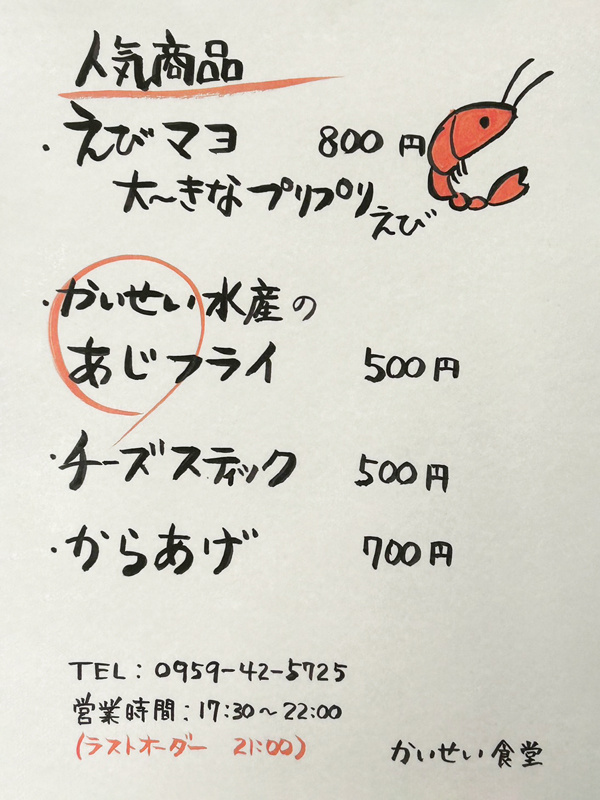 人気商品
・えびマヨ 800円
大〜きなプリプリえび
・かいせい水産の
あじフライ 500円
・チーズスティック 500円
・からあげ 700円
TEL: 0959-42-5725
営業時間:17:30〜22:00
(ラストオーダー 21:00)
かいせい食堂